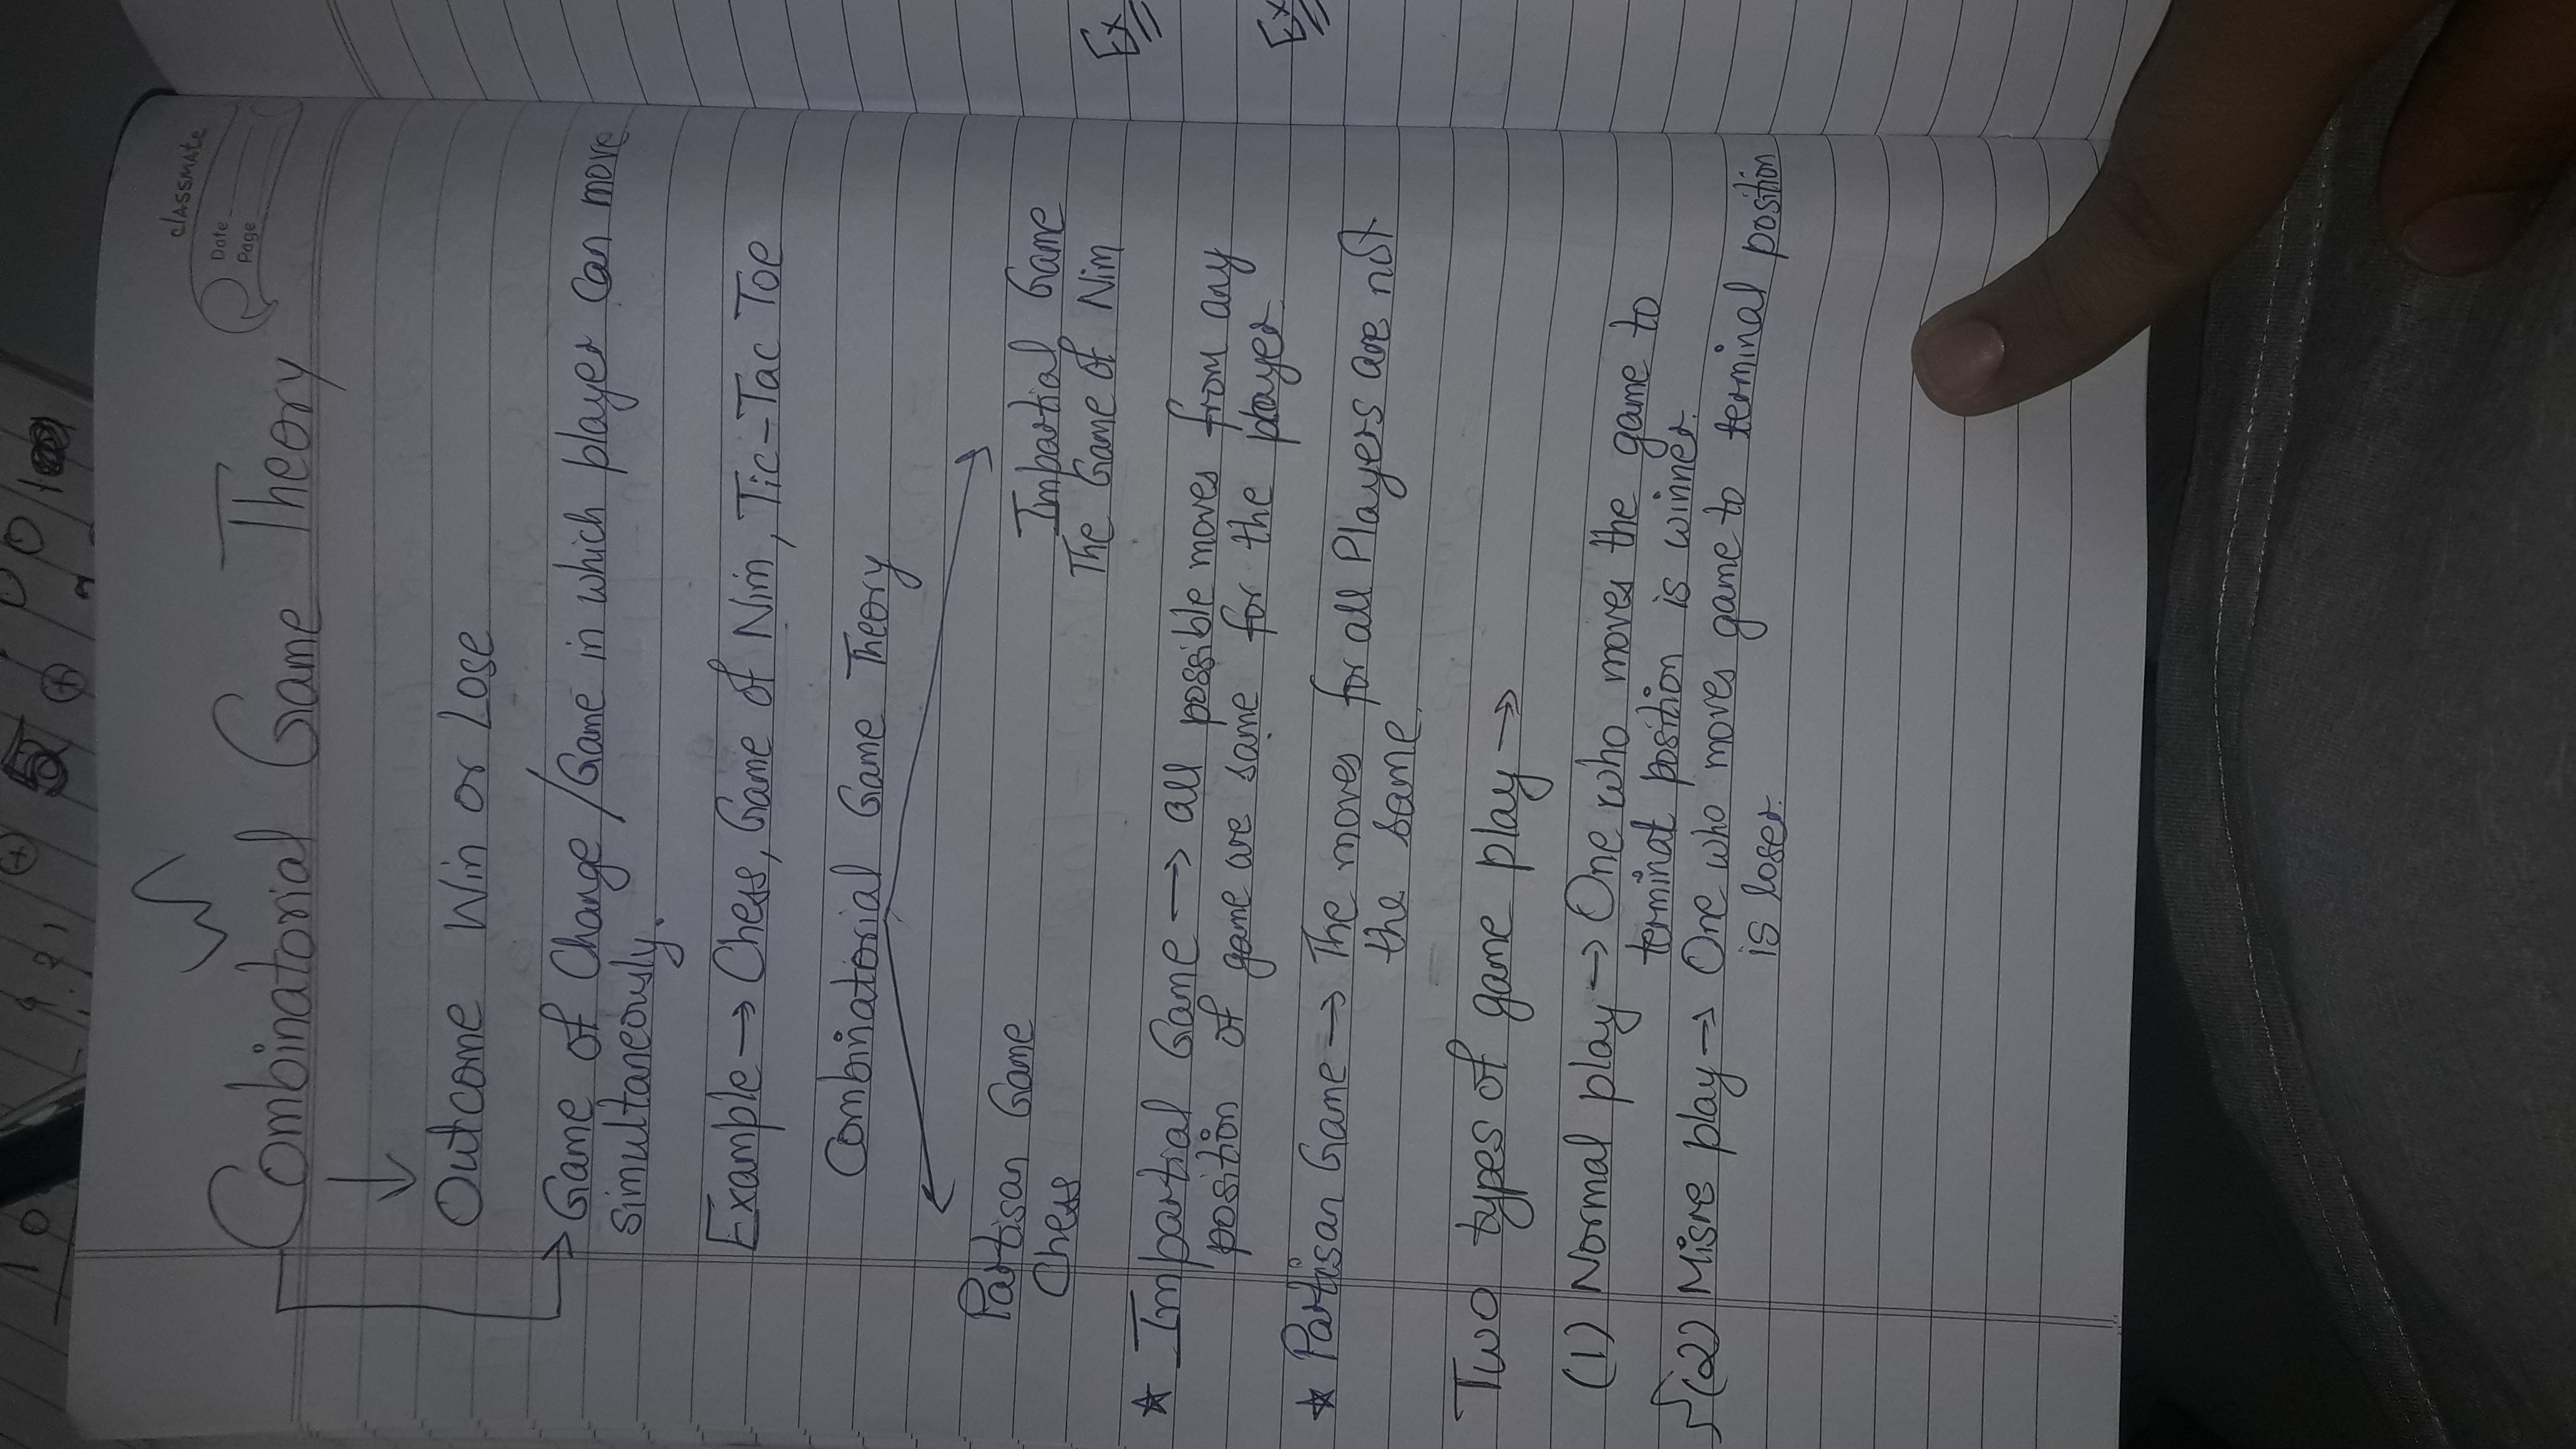 classmate
Date
Page
Combinatorial Game Theory
Outcome Win or Lose
Game of Change / Game in which player can move
simultaneously.
Example → Chess, Game of Nim, Tic-Tac Toe
Combinatorial Game Theory
Partisan Game
Chess
Impartial Game
The Game of Nim
☆ Impartial Game → all possible moves from any
position of game are same for the player
☆ Partisan Game → The moves for all Players are not
the same.
Two types of game play →
(1) Normal play → One who moves the game to
terminat position is winner.
(2) Misre play → One who moves game to terminal position
is loser.
Ex
Ex